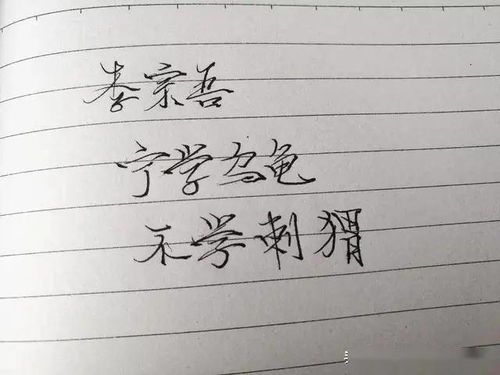 李宗吾
宁学乌龟
不学刺猬